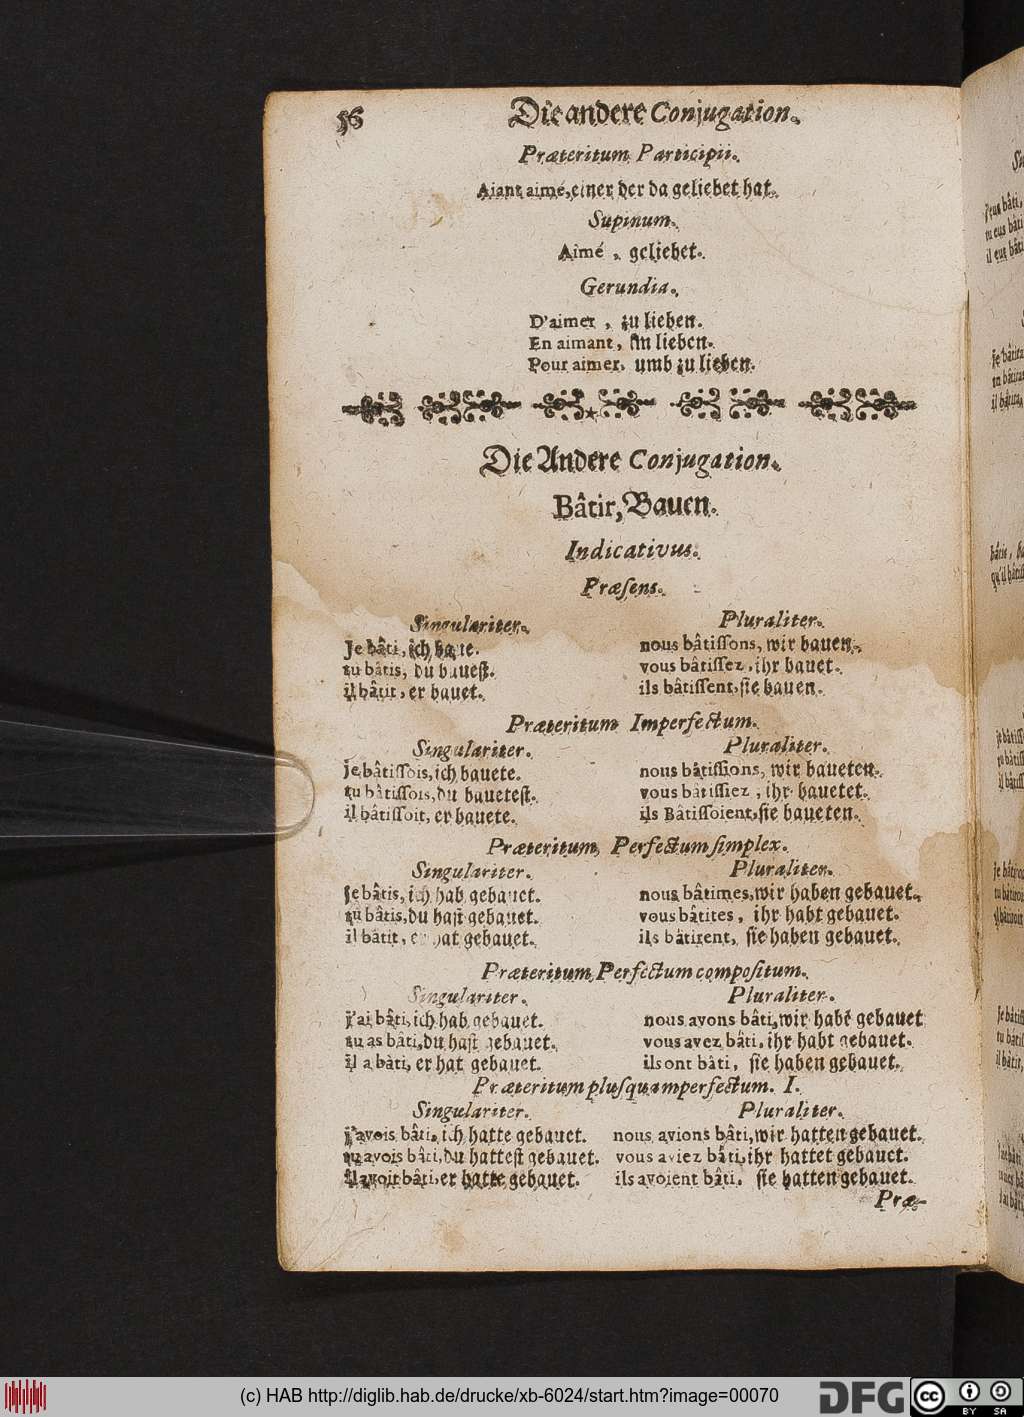 56 Die andere Conjugation.
Præteritum Participii.
Aiant aimé, einer der da geliebet hat.
Supinum.
Aimé, geliebet.
Gerundia.
D'aimer, zu lieben.
En aimant, im lieben.
Pour aimer, umb zu lieben.
Die Andere Conjugation.
Bâtir, Bauen.
Indicativus.
Præsens.
Singulariter. Pluraliter.
Je bâti, ich baue. nous bâtissons, wir bauen.
tu bâtis, du bauest. vous bâtissez, ihr bauet.
il bâtit, er bauet. ils bâtissent, sie bauen.
Præteritum Imperfectum.
Singulariter. Pluraliter.
je bâtissois, ich bauete. nous bâtissions, wir baueten.
tu bâtissois, du bauetest. vous bâtissiez, ihr bauetet.
il bâtissoit, er bauete. ils Bâtissoient, sie baueten.
Præteritum Perfectum simplex.
Singulariter. Pluraliter.
Je bâtis, ich hab gebauet. nous bâtimes, wir haben gebauet.
tu bâtis, du hast gebauet. vous bâtites, ihr habt gebauet.
il bâtit, er hat gebauet. ils bâtirent, sie haben gebauet.
Præteritum Perfectum compositum.
Singulariter. Pluraliter.
j'ai bâti, ich hab gebauet. nous avons bâti, wir habẽ gebauet
tu as bâti, du hast gebauet. vous avez bâti, ihr habt gebauet.
il a bâti, er hat gebauet. ils ont bâti, sie haben gebauet.
Præteritum plusquamperfectum. I.
Singulariter. Pluraliter.
j'avois bâti, ich hatte gebauet. nous avions bâti, wir hatten gebauet.
tu avois bâti, du hattest gebauet. vous aviez bâti, ihr hattet gebauet.
il avoit bâti, er hatte gebauet. ils avoient bâti, sie hatten gebauet.
Præ-
(c) HAB http://diglib.hab.de/drucke/xb-6024/start.htm?image=00070
DFG
cc BY SA